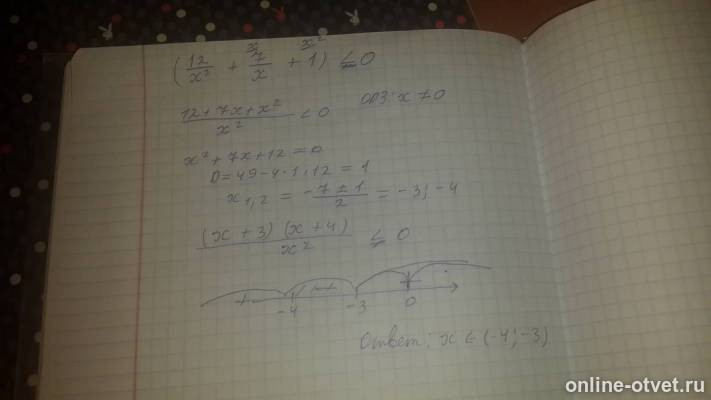 (12/x² + 7/x + 1) ≤ 0
x x²
(12+7x+x²)/x² < 0 ОДЗ: x ≠ 0
x² + 7x + 12 = 0
D = 49 - 4 · 1 · 12 = 1
x₁,₂ = (-7 ± 1)/2 = -3; -4
((x + 3) (x + 4))/x² ≤ 0
+ - + +
-4 -3 0
Ответ: x ∈ (-4; -3)
online-otvet.ru